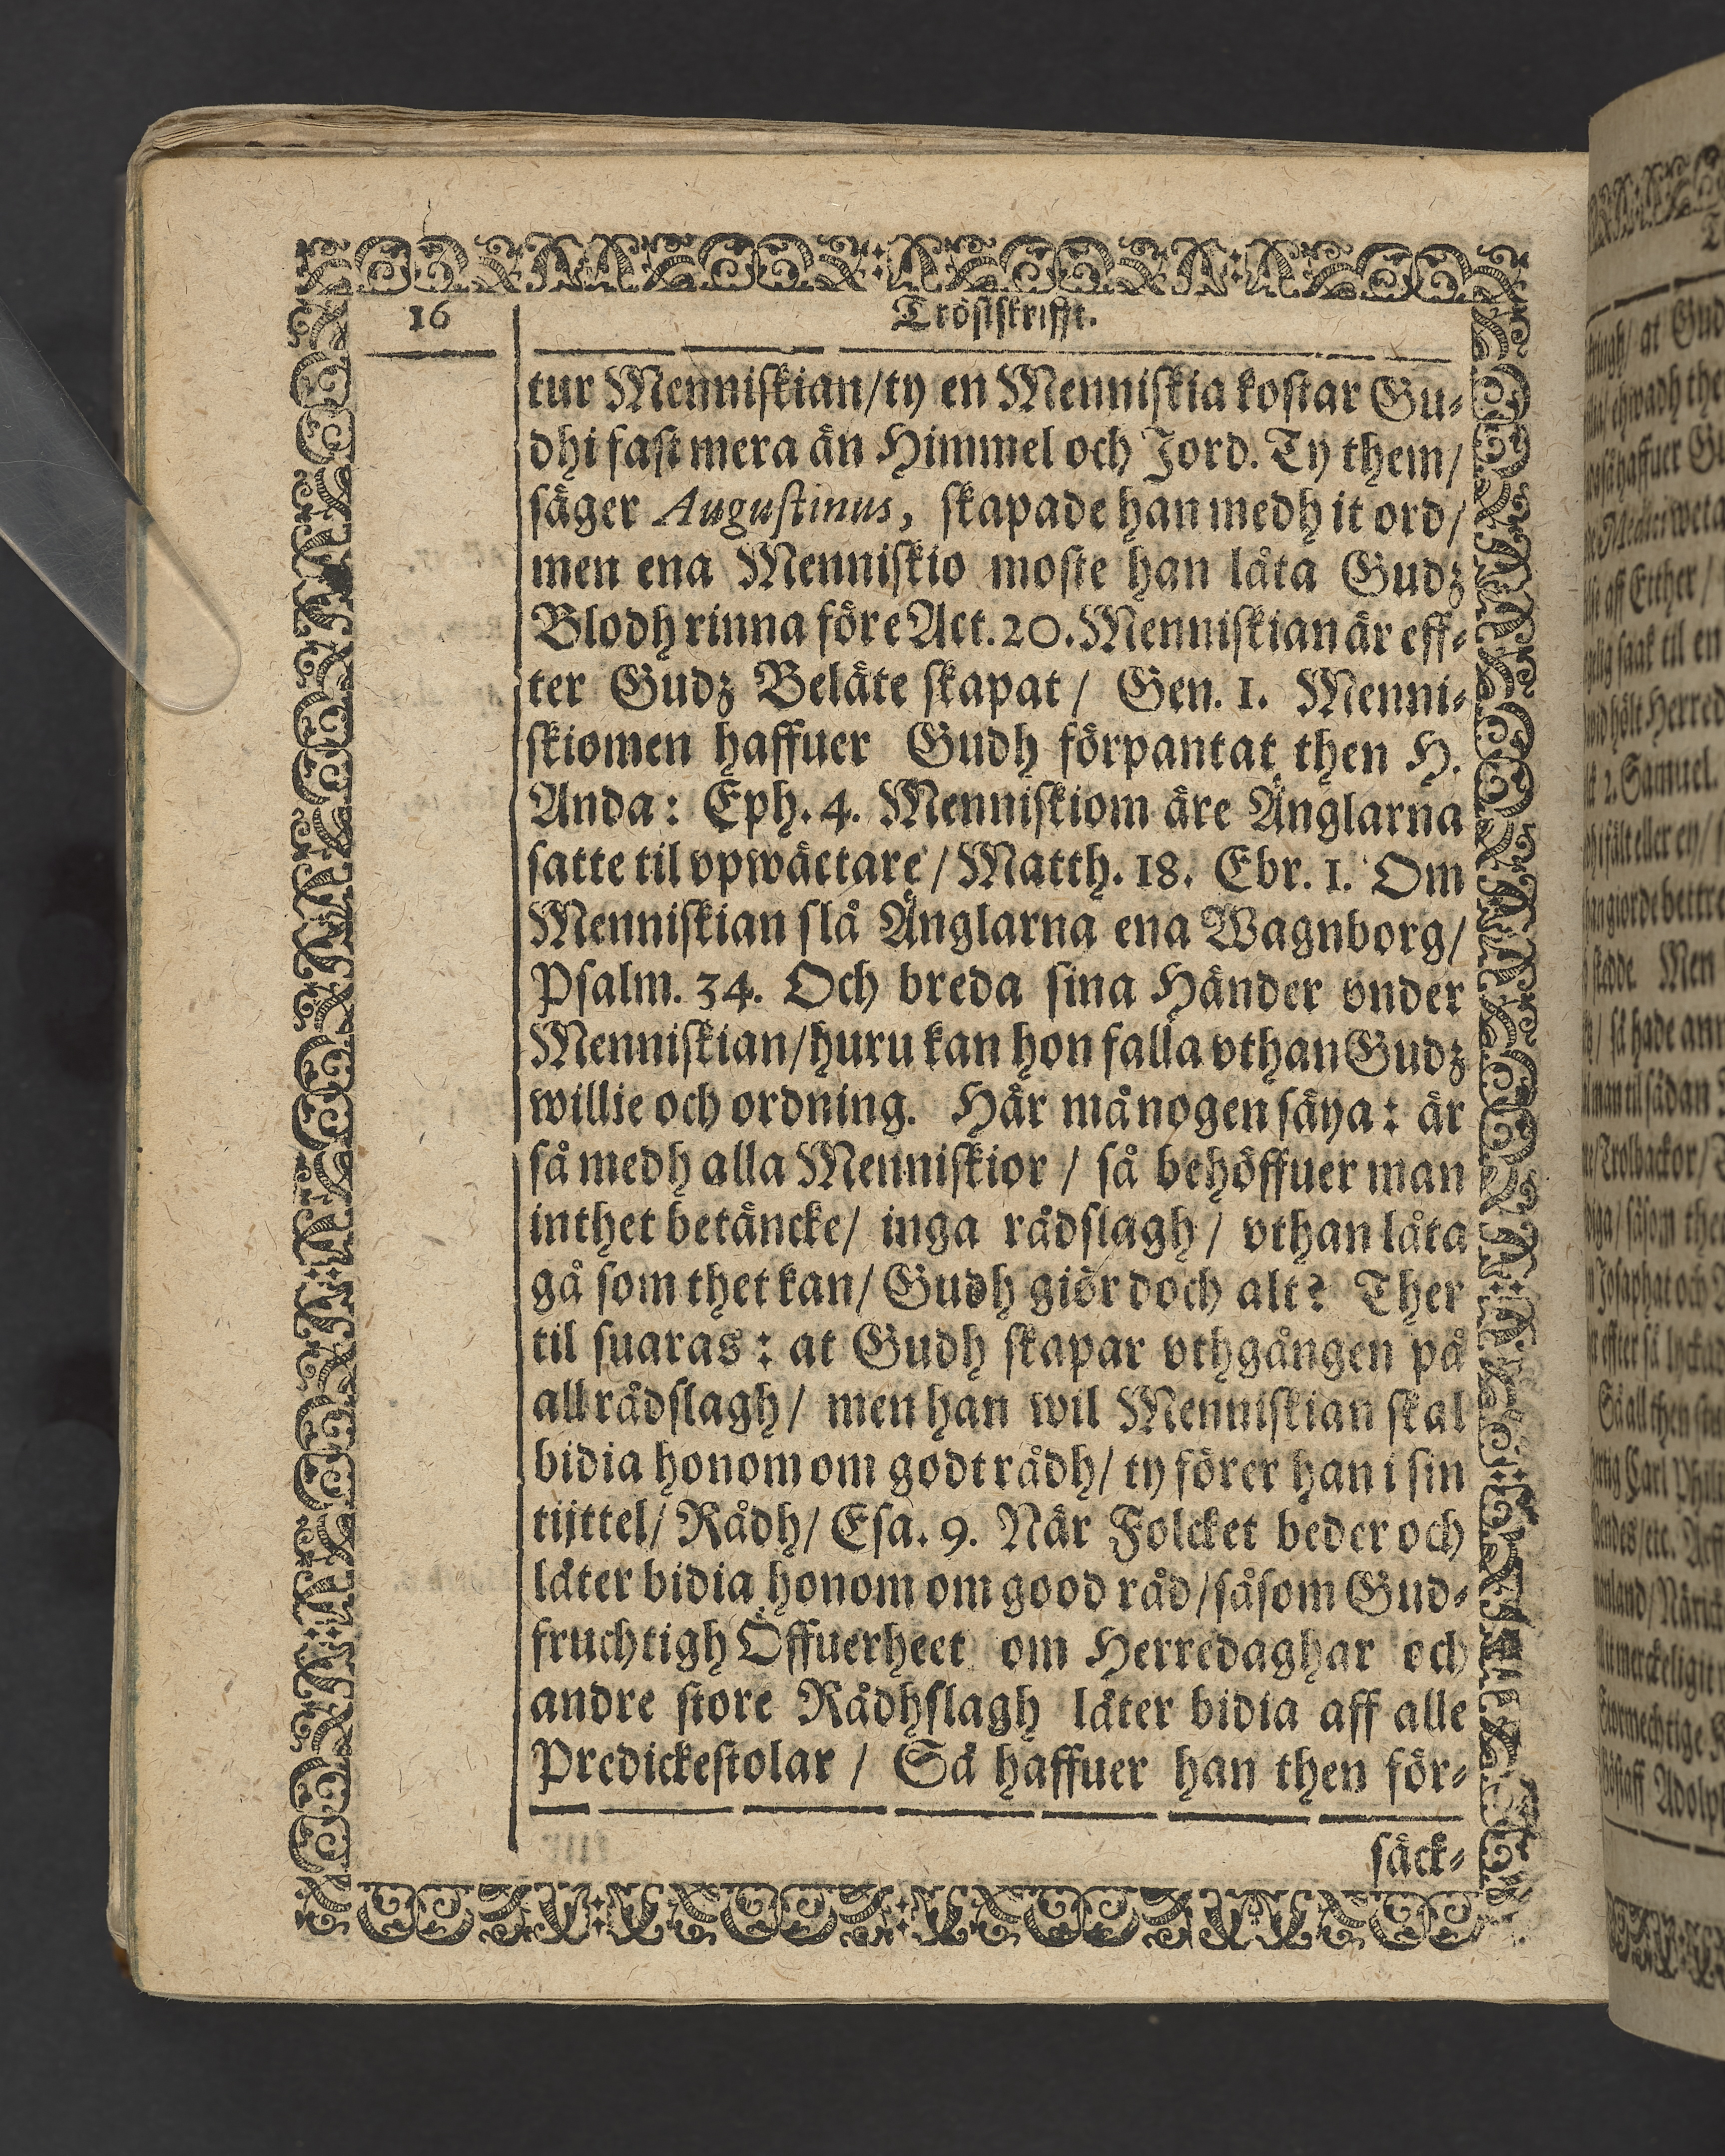 16
Tröstskrifft.
tur Menniskian/ty en Menniskia kostar Gu-
dhi fast mera än Himmel och Jord. Ty them/
säger Augustinus, skapade han medh it ord/
men ena Menniskio moste han låta Gudz
Blodh rinna före Act. 20. Menniskian är eff-
ter Gudz Beläte skapat / Gen. 1. Menni-
skiomen haffuer Gudh förpantat then H.
Anda: Eph. 4. Menniskiom äre Änglarna
satte til vpwäctare / Matth. 18. Ebr. 1. Om
Menniskian slå Änglarna ena Wagnborg/
Psalm. 34. Och breda sina Händer vnder
Menniskian/huru kan hon falla vthan Gudz
willie och ordning. Här må nogen säya: är
så medh alla Menniskior / så behöffuer man
inthet betäncke/ inga rådslagh / vthan låta
gå som thet kan/ Gudh giör doch alt? Ther
til suaras: at Gudh skapar vthgången på
all rådslagh/ men han wil Menniskian skal
bidia honom om godt rådh/ ty förer han i sin
tijttel/ Rådh/ Esa. 9. När Folcket beder och
låter bidia honom om good råd/såsom Gud-
fruchtigh Öffuerheet om Herredaghar och
andre store Rådhslagh låter bidia aff alle
Predickestolar / Så haffuer han then för-
säck-